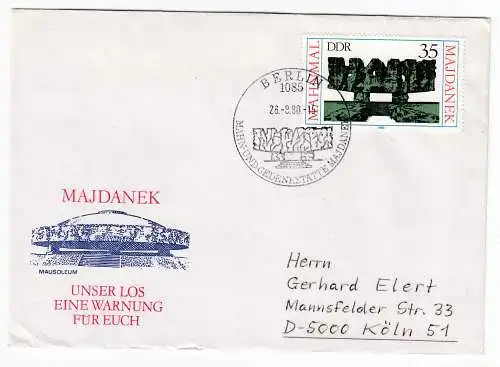 DDR 35
MAHNMAL
MAJDANEK
BERLIN
1085
MAHN- UND GEDENKSTÄTTE MAJDANEK
MAJDANEK
MAUSOLEUM
UNSER LOS
EINE WARNUNG
FÜR EUCH
Herrn
Gerhard Elert
Mannsfelder Str. 33
D-5000 Köln 51